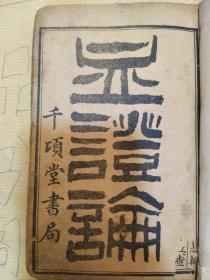 血證論
千頃堂書局